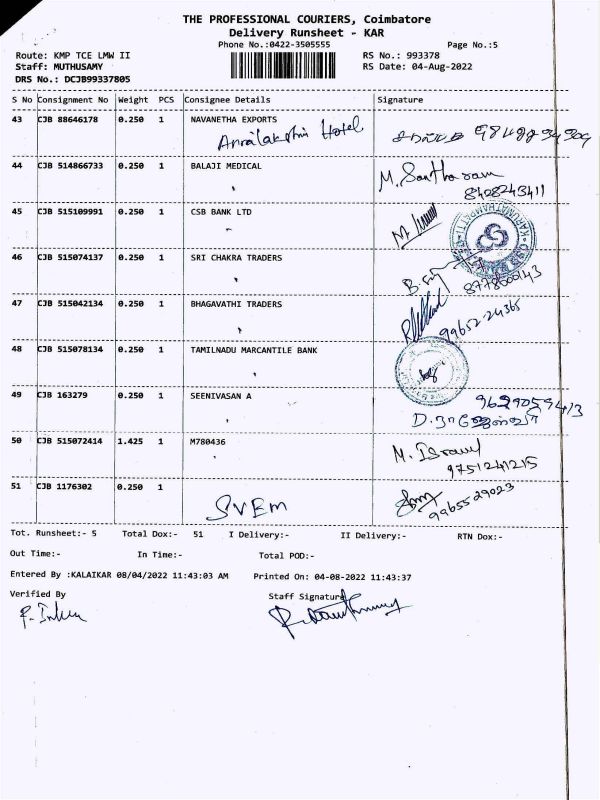 THE PROFESSIONAL COURIERS, Coimbatore
Delivery Runsheet - KAR
Phone No.:0422-3505555
Page No.:5
Route: KMP TCE LMW II
RS No.: 993378
Staff: MUTHUSAMY
RS Date: 04-Aug-2022
DRS No.: DCJB99337805
S No Consignment No Weight PCS Consignee Details Signature
43 CJB 88646178 0.250 1 NAVANETHA EXPORTS
Hotel
44 CJB 514866733 0.250 1 BALAJI MEDICAL
M. Santharam
8408243411
45 CJB 515109991 0.250 1 CSB BANK LTD
46 CJB 515074137 0.250 1 SRI CHAKRA TRADERS
8778600143
47 CJB 515042134 0.250 1 BHAGAVATHI TRADERS
99652 24365
48 CJB 515078134 0.250 1 TAMILNADU MARCANTILE BANK
49 CJB 163279 0.250 1 SEENIVASAN A
50 CJB 515072414 1.425 1 M780436
9751241215
51 CJB 1176302 0.250 1
SVEM
9965529023
Tot. Runsheet:- 5 Total Dox:- 51 I Delivery:- II Delivery:- RTN Dox:-
Out Time:- In Time:- Total POD:-
Entered By :KALAIKAR 08/04/2022 11:43:03 AM Printed On: 04-08-2022 11:43:37
Verified By
Staff Signature